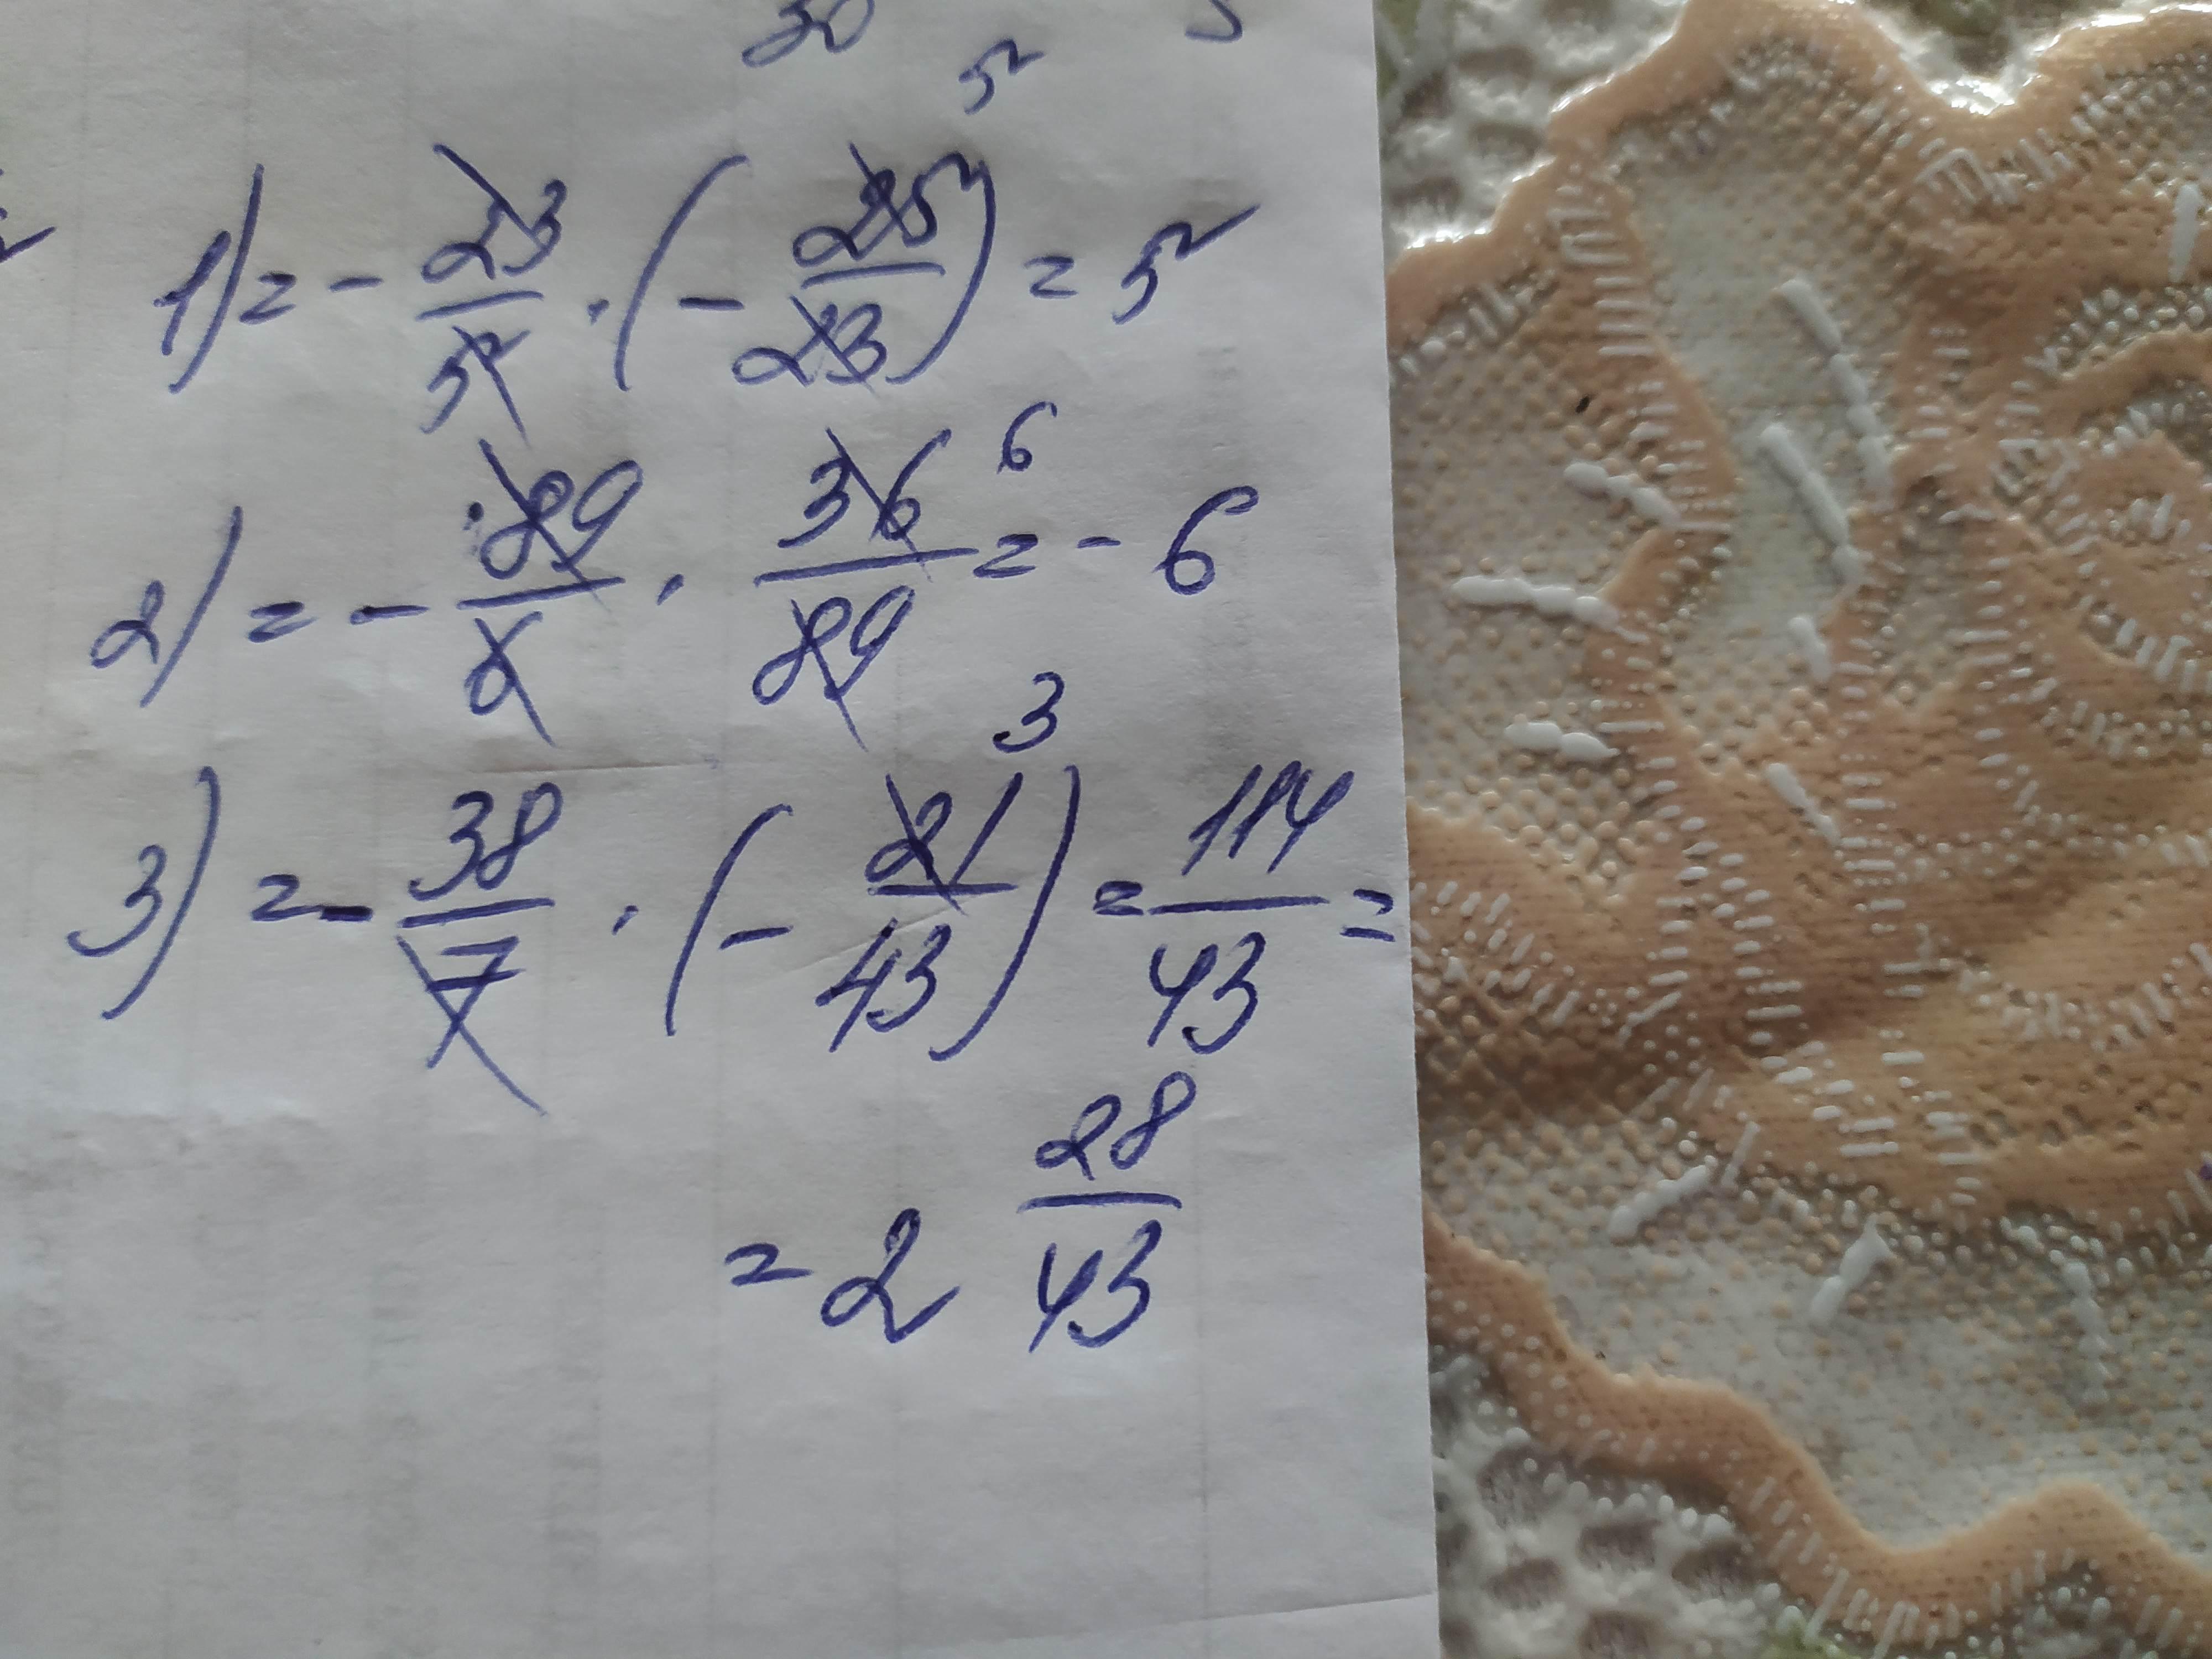 30 5
5
1) = - 23/5 · (- 25/23) = 5
6
2) = - 89/6 · 36/89 = - 6
3
3) = - 38/7 · (- 21/43) = 114/43 =
= 2 28/43